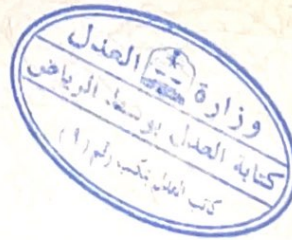 وزارة العدل
كتابة العدل بوسط الرياض
كاتب العدل بمكتب رقم (٩)